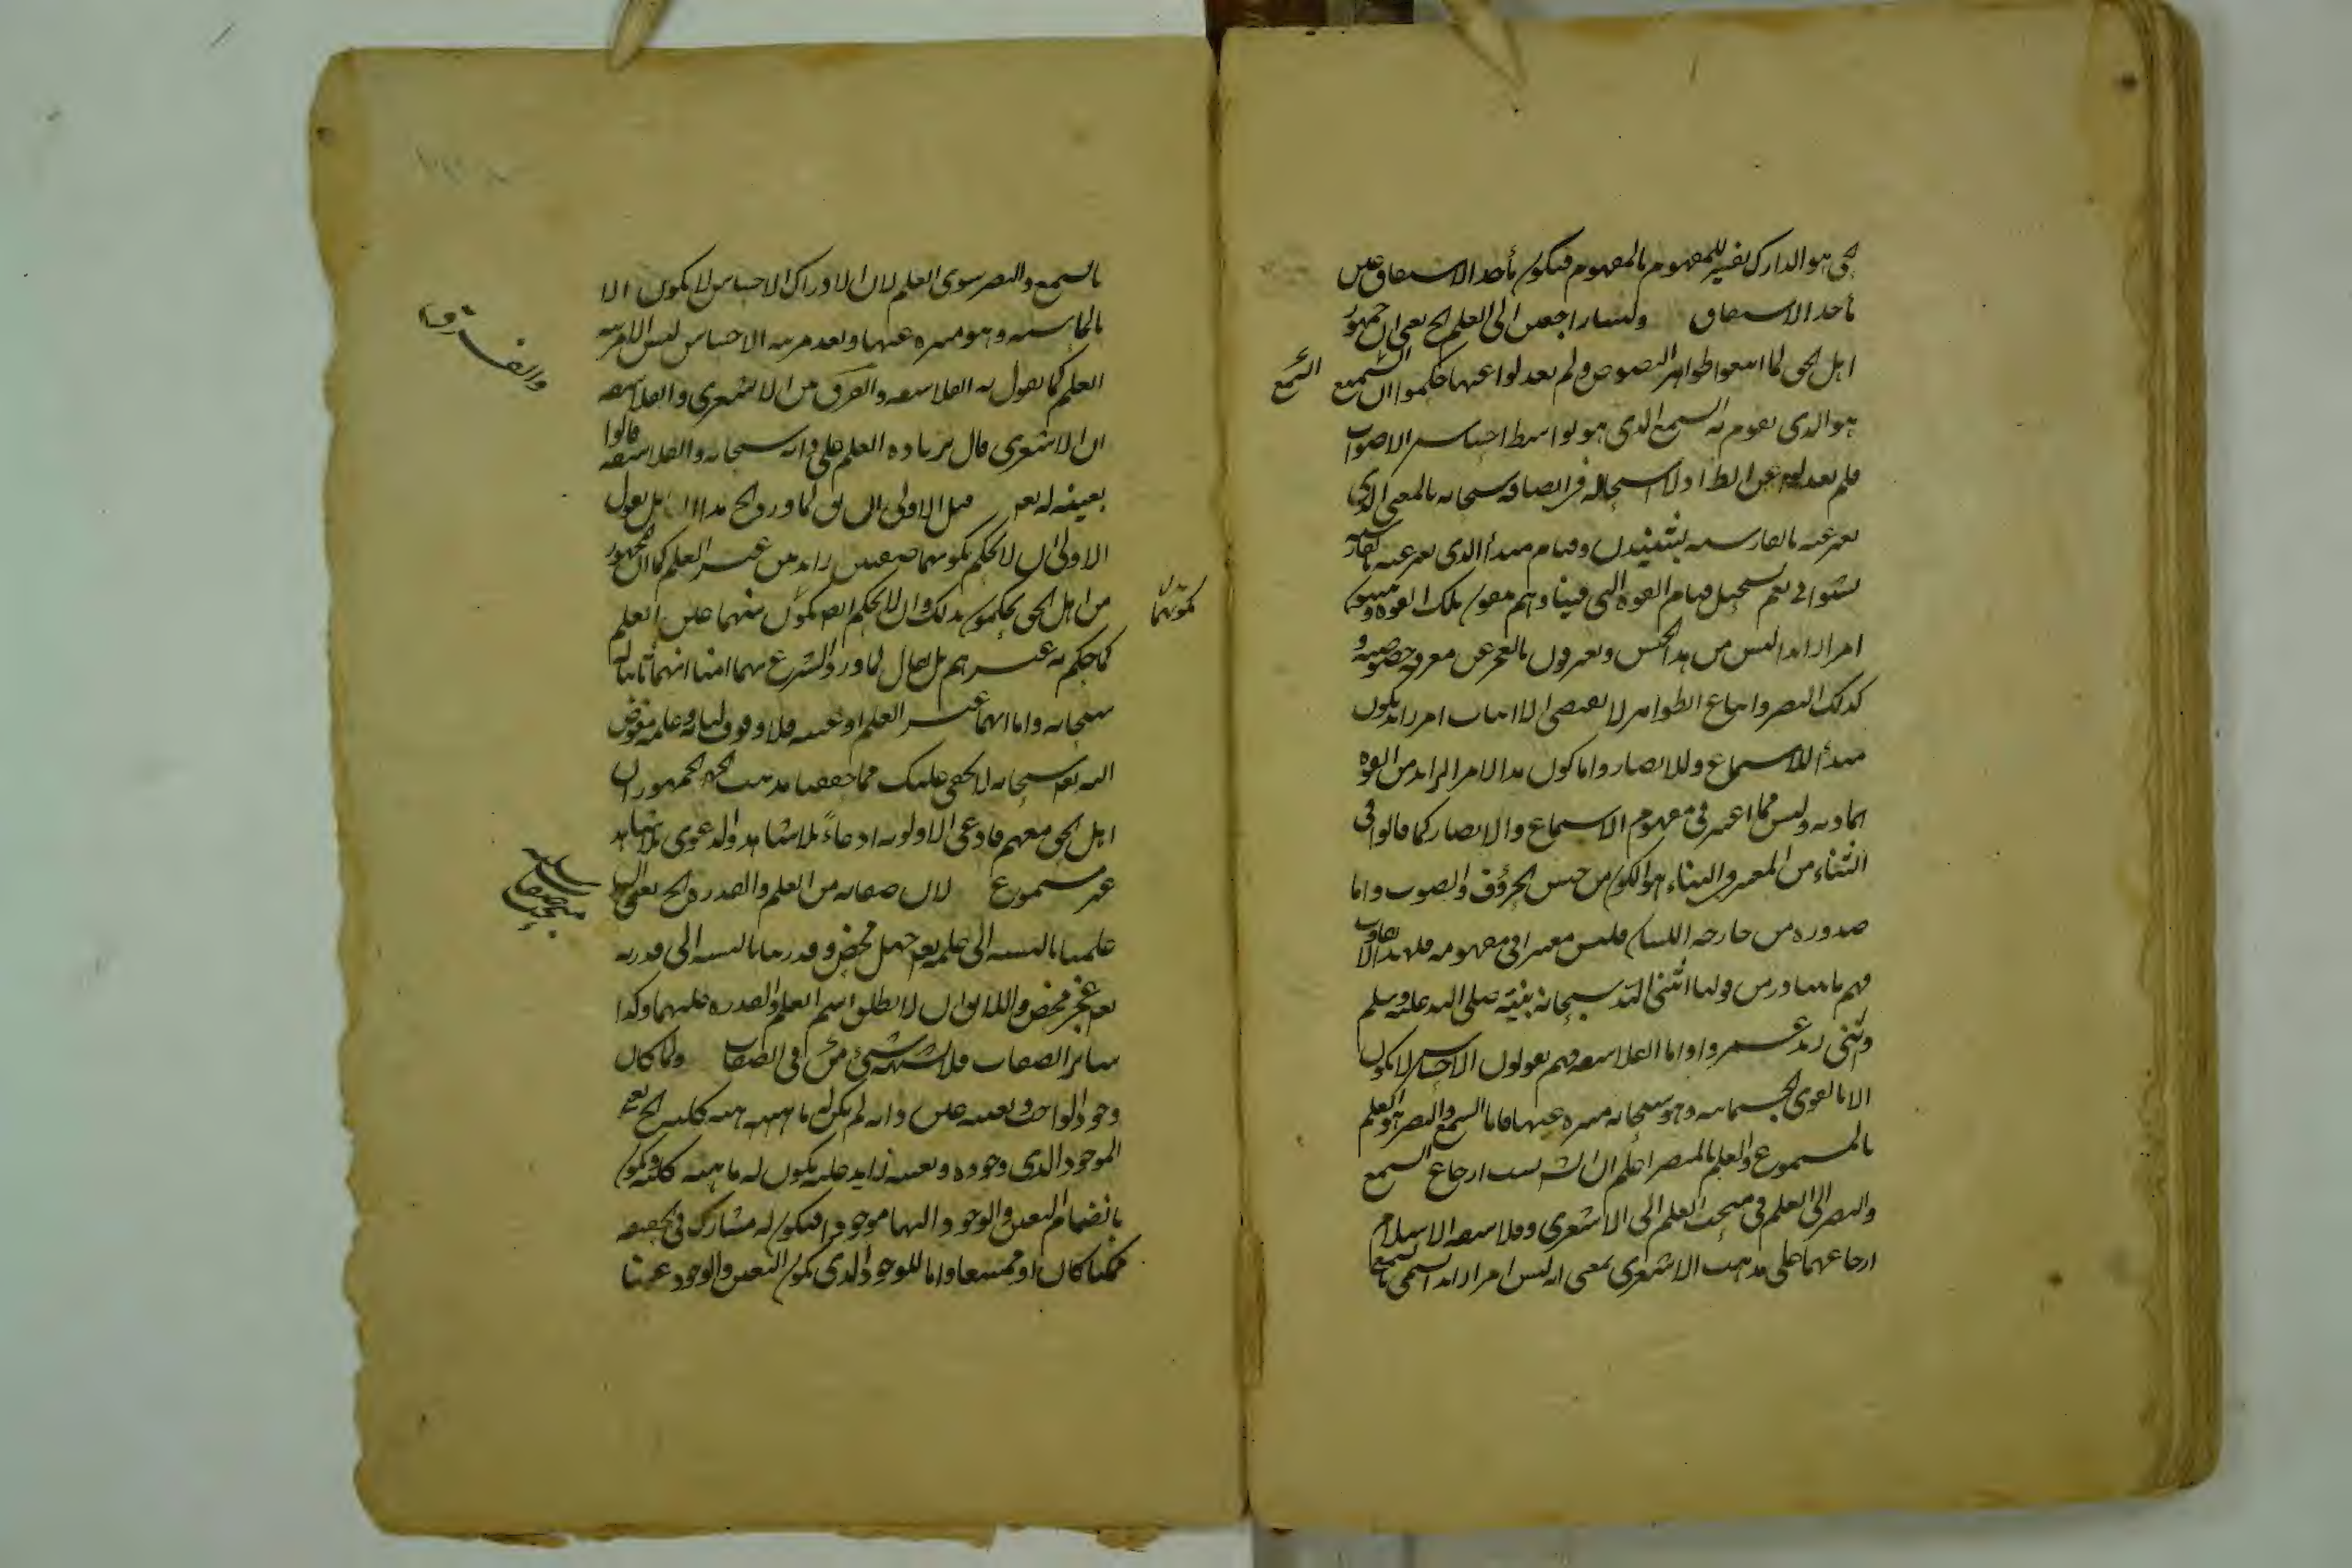 الحى هو الدارك تفسير للمفهوم بالمفهوم فيكون مأخذ الاشتقاق عين
مأخذ الاشتقاق وليسا راجعين الى العلم الخ يعنى ان جمهور
اهل الحق لما اتبعوا ظواهر النصوص ولم يعدلوا عنها حكموا ان السميع
السمع
هو الذى يقوم به السمع الذى هو بواسطة احساس الاصوات
فلم يعدلوا عن الظاهر ولا استحالة فى اتصافه سبحانه بالمعنى الذى
يعبر عنه بالفارسية بشنيدن وقيام مبدأ الذى يعبر عنه بالفارسية
بشنوائى نعم يستحيل قيام القوة التى فينا وهم ينفون تلك القوة ويثبتون
امرا زائدا ليس من هذا الجنس ويعترفون بالعجز عن معرفة خصوصيته و
كذلك البصر واتباع الظواهر لا يقتضى الا اثبات امر زائد يكون
مبدأ للاسماع وللابصار واما كون هذا الامر الزائد من القوة
المادية وليس مما اعتبر فى مفهوم الاسماع والابصار كما قالوا فى
الثناء من المعتبر والبناء هو الكون من جنس الحروف والصوت واما
صدوره من جارحة اللسان فليس معتبرا فى مفهومه فلهذا لا
فهم ما يتبادر من قولنا اثنى الله سبحانه بنبيه صلى الله عليه وسلم
واثنى زيد عمروا واما الفلاسفة فهم يقولون الاحساس لا يكون
الا بالقوى الجسمانية وهو سبحانه منزه عنها فاما السمع والبصر هو العلم
بالمسموع والعلم بالمبصر اعلم ان الش نسب ارجاع السمع
والبصر الى العلم فى مبحث العلم الى الاشعرى وفلاسفة الاسلام
ارجاعهما على مذهب الاشعرى بمعنى انه ليس امرا زائدا يسمى بالسمع
بالسمع والبصر سوى العلم لان الادراك الاحساس لا يكون الا
بالحاسة وهو منزه عنها وبعد مرتبة الاحساس ليس الا مرتبة
العلم كما يقول به الفلاسفة والفرق بين الاشعرى والفلاسفة
والفرق
ان الاشعرى قال بزيادة العلم على ذاته سبحانه والفلاسفة قالوا
بعينيته له تعم قيل الاولى ان يق لما ورد الخ هذا ان اهل يقول
الاولى ان لا يحكم بكونهما صفتين زائدتين غير العلم كما ان الجمهور
من اهل الحق يحكمون بذلك وان لا يحكم ايض بكون منهما عين العلم
كونهما
كما حكم به غيرهم بل يقال لما ورد الشرع بهما امنا انهما ثابتان له
سبحانه واما انهما غير العلم او عينه فلا وقوف لنا وعلمه مفوض
اليه تعم سبحانه لا يخفى عليك مما حققنا مذهب الجمهور ان
اهل الحق معهم فادعى الاولوية ادعاء بلا شاهد والدعوى بلا شاهد
غير مسموع لان صفاته من العلم والقدرة الخ يعنى
علمنا بالنسبة الى علمه تعم جهل محض وقدرتنا بالنسبة الى قدرته
تعم عجز محض واللائق ان لا يطلق اسم العلم والقدرة عليهما وكذا
سائر الصفات فلا يشبهه شىء من فى الصفات ولما كان
وجود الواجب وتعينه عين ذاته لم يكن له ماهية كلية الخ يعنى
الموجود الذى وجوده وتعينه زايد عليه يكون له ماهية كلية ويكون
بانضمام التعين والوجود اليها موجودا فيكون له مشارك فى الحقيقة
ممكنا كان او ممتنعا واما للوجود الذى يكون التعين والوجود عينا